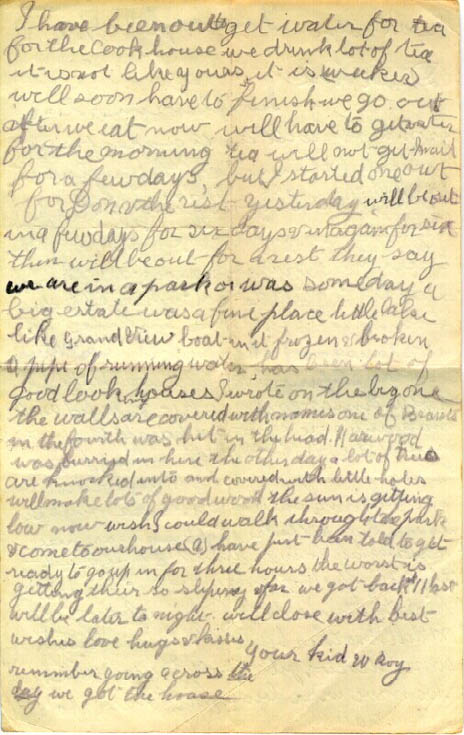 I have been out to get water for tea
for the cook house we drink lot of tea
it is not like yours, it is weaker
will soon have to finish we go out
after we eat now will have to get water
for the morning tea will not get this
for a few days, but I started one out
for Don & the rest yesterday will be out
in a few days for six days & in again for six
then will be out for a rest they say
we are in a park or was some day a
big estate was a fine place little lake
like Grand View boat in it frozen & broken
a pipe of running water, has been lot of
good look houses I wrote on the big one
the walls are covered with names one of
in the fourth was hit in the head. Harwood
was burried in here the other day a lot of trees
are knocked into and covered with little holes
will make lots of good wood the sun is getting
low now wish I could walk through the park
& come to our house (a) have just been told to get
ready to go up in for three hours the worst is
getting their so slipery & far we got back 11 last
will be later to night. will close with best
wishes love hugs & kisses
your kid Roy
rember going across the
day we got the house